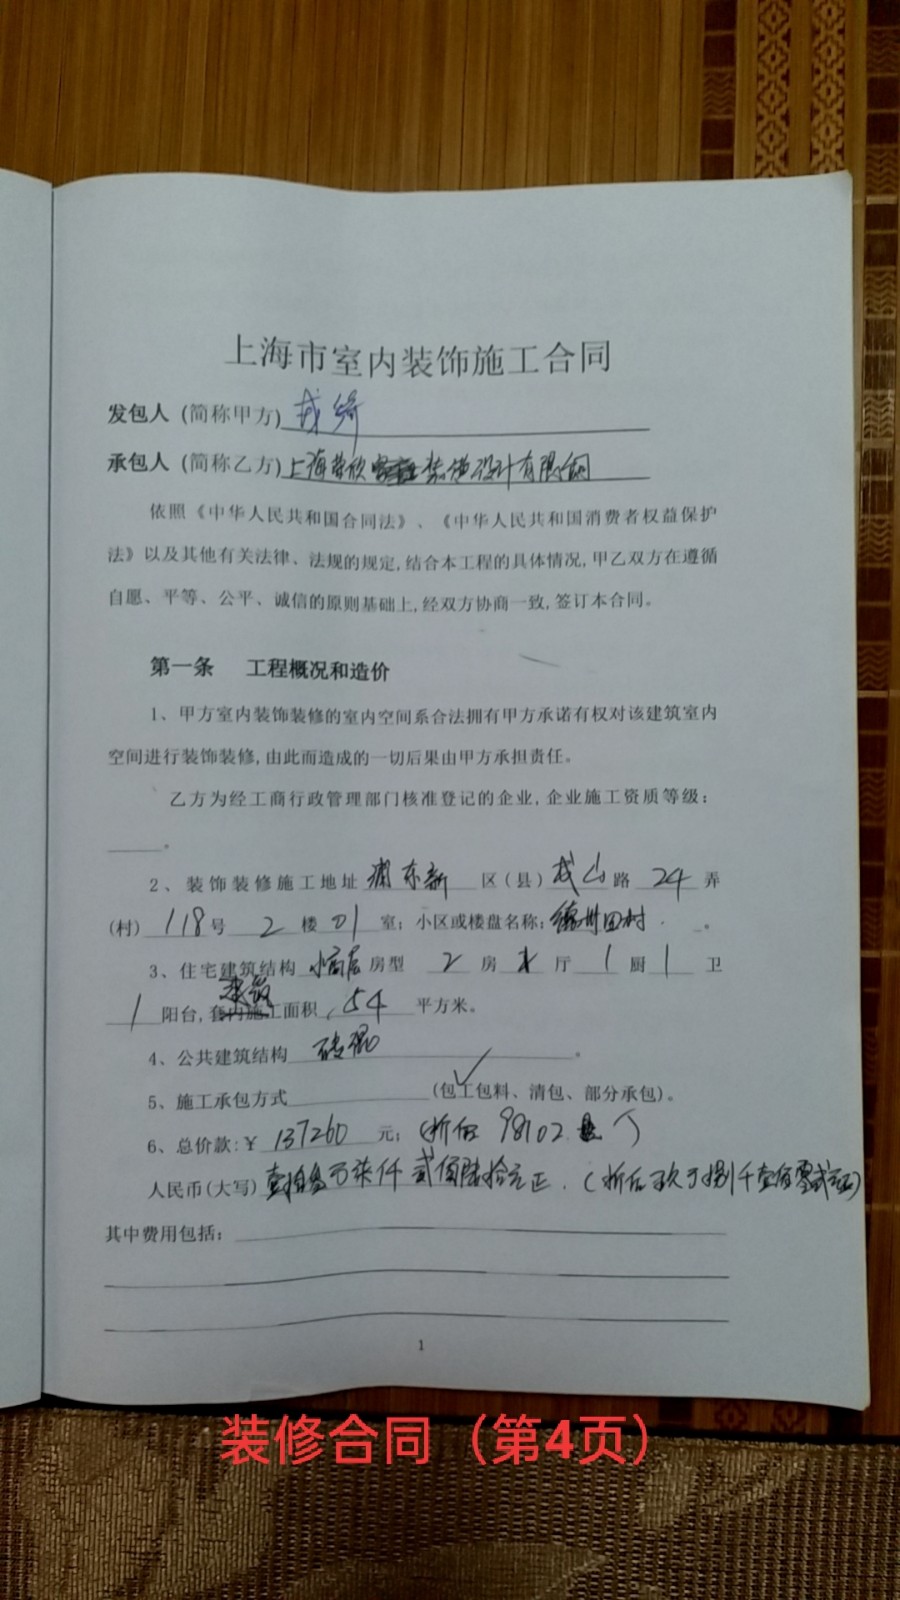 上海市室内装饰施工合同
发包人 (简称甲方) 戎绮
承包人 (简称乙方) 上海荣欣装潢设计有限公司
依照《中华人民共和国合同法》、《中华人民共和国消费者权益保护
法》以及其他有关法律、法规的规定,结合本工程的具体情况,甲乙双方在遵循
自愿、平等、公平、诚信的原则基础上,经双方协商一致,签订本合同。
第一条 工程概况和造价
1、甲方室内装饰装修的室内空间系合法拥有甲方承诺有权对该建筑室内
空间进行装饰装修,由此而造成的一切后果由甲方承担责任。
乙方为经工商行政管理部门核准登记的企业,企业施工资质等级:
。
2、装饰装修施工地址 浦东新 区(县) 成山 路 24 弄
(村) 118 号 2 楼 01 室; 小区或楼盘名称: 德州四村 。
3、住宅建筑结构 小高层 房型 2 房 厅 1 厨 1 卫
1 阳台, 套内施工面积 54 平方米。
4、公共建筑结构 砖混 。
5、施工承包方式 (包工包料、清包、部分承包)。
6、总价款:¥ 137260 元; (折后 98102 )
人民币(大写) 壹拾叁万柒仟贰佰陆拾元正. (折后玖万捌千壹佰零贰元正)
其中费用包括:
1
装修合同（第4页）